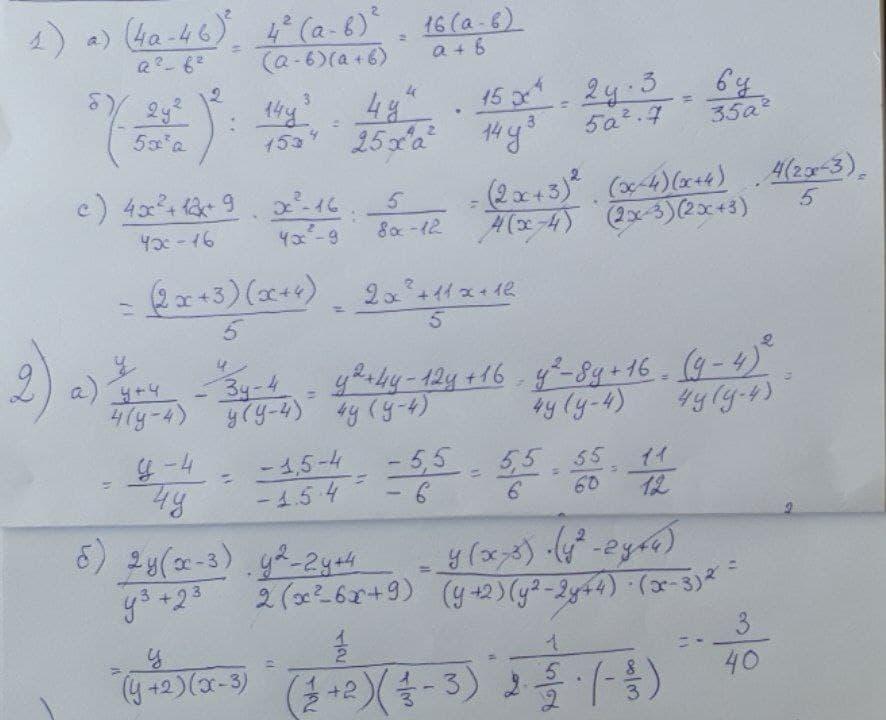 1) а) (4a-4b)²/(a²-b²) = 4²(a-b)²/((a-b)(a+b)) = 16(a-b)/(a+b)
б) (-2y²/(5x²a))² : 14y³/(15x⁴) = 4y⁴/(25x⁴a²) · 15x⁴/(14y³) = (2y·3)/(5a²·7) = 6y/(35a²)
с) (4x²+12x+9)/(4x-16) · (x²-16)/(4x²-9) : 5/(8x-12) = (2x+3)²/(4(x-4)) · ((x-4)(x+4))/((2x-3)(2x+3)) · 4(2x-3)/5 =
= ((2x+3)(x+4))/5 = (2x²+11x+12)/5
2) а) y/ (y+4)/(4(y-4)) - 4/ (3y-4)/(y(y-4)) = (y²+4y-12y+16)/(4y(y-4)) = (y²-8y+16)/(4y(y-4)) = (y-4)²/(4y(y-4)) =
= (y-4)/(4y) = (-1,5-4)/(-1.5·4) = (-5,5)/(-6) = 5,5/6 = 55/60 = 11/12
б) 2y(x-3)/(y³+2³) · (y²-2y+4)/(2(x²-6x+9)) = (y(x-3)·(y²-2y+4))/((y+2)(y²-2y+4)·(x-3)²) =
= y/((y+2)(x-3)) = (1/2)/((1/2+2)(1/3-3)) = 1/(2·5/2·(-8/3)) = -3/40